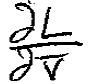 ∂L
∂V̄